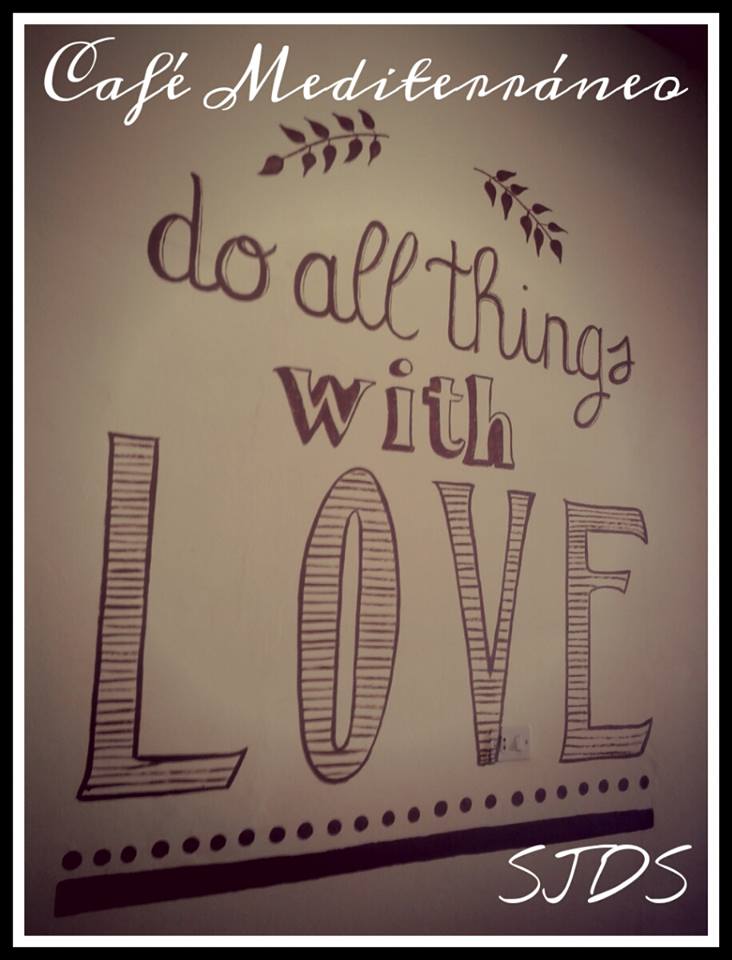 Café Mediterráneo
do all things
with
LOVE
SJDS